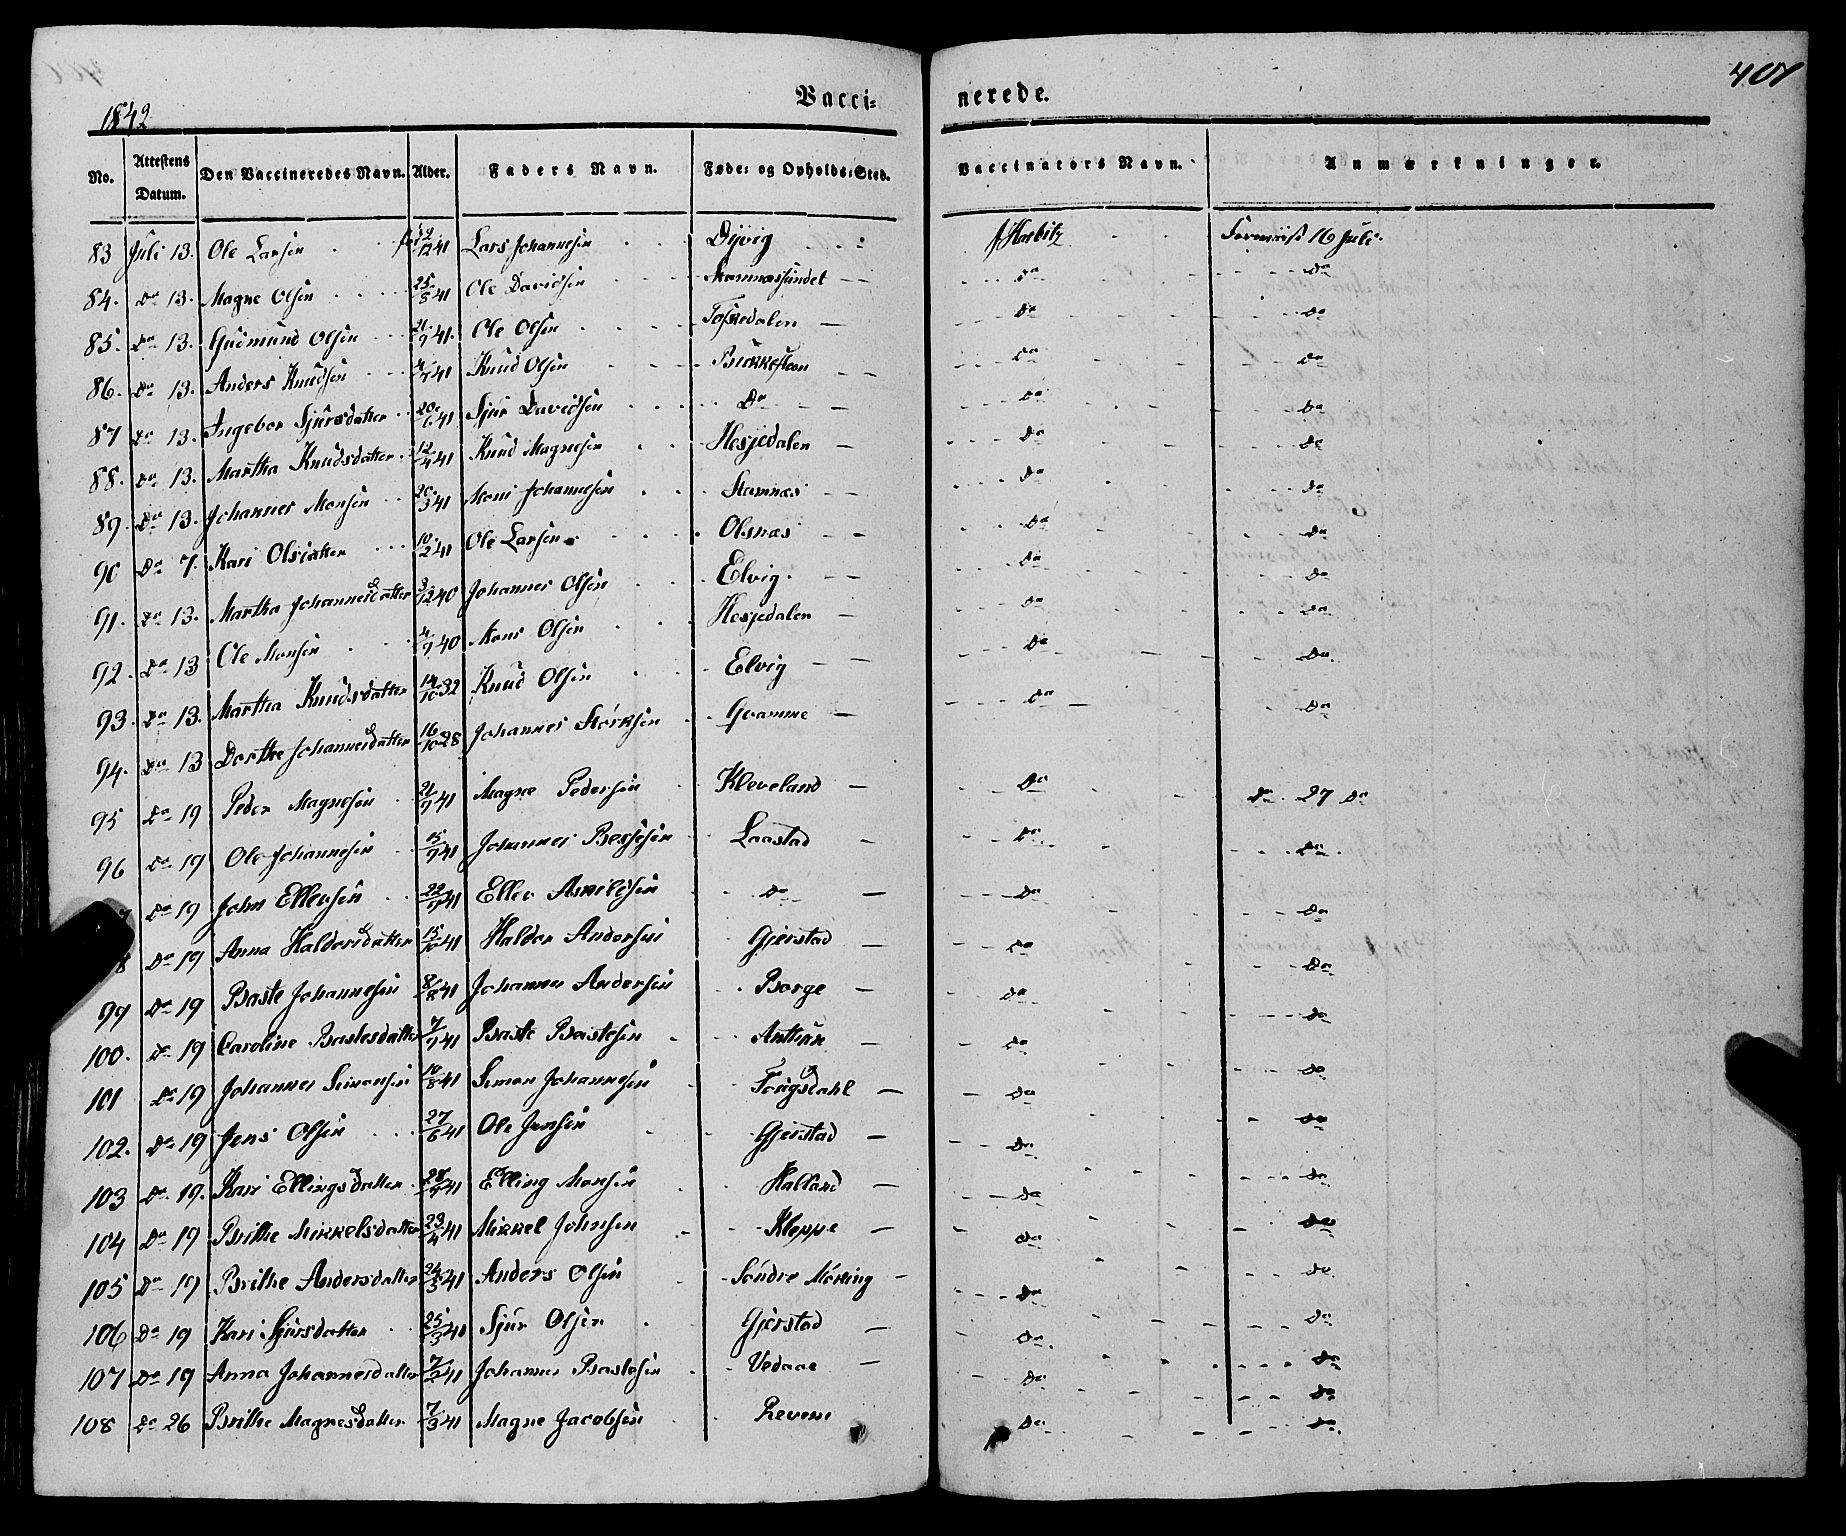 407
1842
Vacci= nerede.
No. Attestens Datum. Den Vaccineredes Navn. Alder. Faders Navn. Føde= og Opholds=Sted. Vaccinators Navn. Anmærkninger.
83 Juli 13. Ole Larsen 12/12 41 Lars Johannesen Dyvig Harbitz 16 Juli.
84. Do 13. Magne Olsen 25/8 41 Ole Davidsen Stamnæssundet Do Do
85. Do 13. Gudmund Olsen 21/9 41. Ole Olsen Toskedalen Do Do
86. Do 13. Anders Knudsen 4/7 41 Knud Olsen Do Do
87 Do 13. Ingebor Sjursdatter 20/6 41 Sjur Davidsen Do Do Do
88. Do 13. Martha Knudsdatter 12/4 41 Knud Magnesen Hesjedalen Do Do
89. Do 13. Johannes Monsen 20/3 41 Mons Johannesen Stamnæs Do Do
90 Do 7. Kari Olsdatter 10/2 41 Ole Larsen Olsnæs Do Do
91. Do 13. Martha Johannesdatter 3/12 40 Johannes Olsen Elvig Do Do
92. Do 13 Ole Monsen 4/9 40 Mons Olsen Hesjedalen Do Do
93. Do 13. Martha Knudsdatter 14/10 32 Knud Olsen Elvig Do Do
94. Do 13 Dorthe Johannesdatter 16/10 28 Johannes Størksen Gvamme Do Do
95 Do 19 Peder Magnesen 21/9 41 Magne Pedersen Kleveland Do Do 27 Do
96 Do 19 Ole Johannesen 15/9 41 Johannes Laastad Do Do
Do 19 John Ellersen 22/9 41 Eller Do Do Do
8 Do 19 Anna Haldorsdatter 15/10 41 Haldor Andersen Gjerstad Do Do
99 Do 19 Baste Johannesen 8/8 41 Johannes Andersen Borge Do Do
100. Do 19 Caroline Bastesdatter 7/9 41 Baste Bastesen Do Do
101 Do 19 Johannes Simonsen 10/8 41 Simon Johannesen Do Do
102. Do 19 Jens Olsen 27/6 41 Ole Jensen Gjerstad Do Do
103 Do 19. Kari Ellingsdatter 28/9 41 Elling Monsen Halland Do Do
104 Do 19 Brithe Mikkelsdatter 23/4 41 Mikkel Johnsen Kleppe Do Do
105 Do 19 Brithe Andersdatter 24/5 41 Anders Olsen Søndre Do Do
106 Do 19 Kari Sjursdatter 25/3 41 Sjur Olsen Gjerstad Do Do
107 Do 19 Anna Johannesdatter 7/2 41 Johannes Bastesen Vedaae Do Do
108 Do 26 Brithe Magnesdatter 7/3 41 Magne Jacobsen Do Do